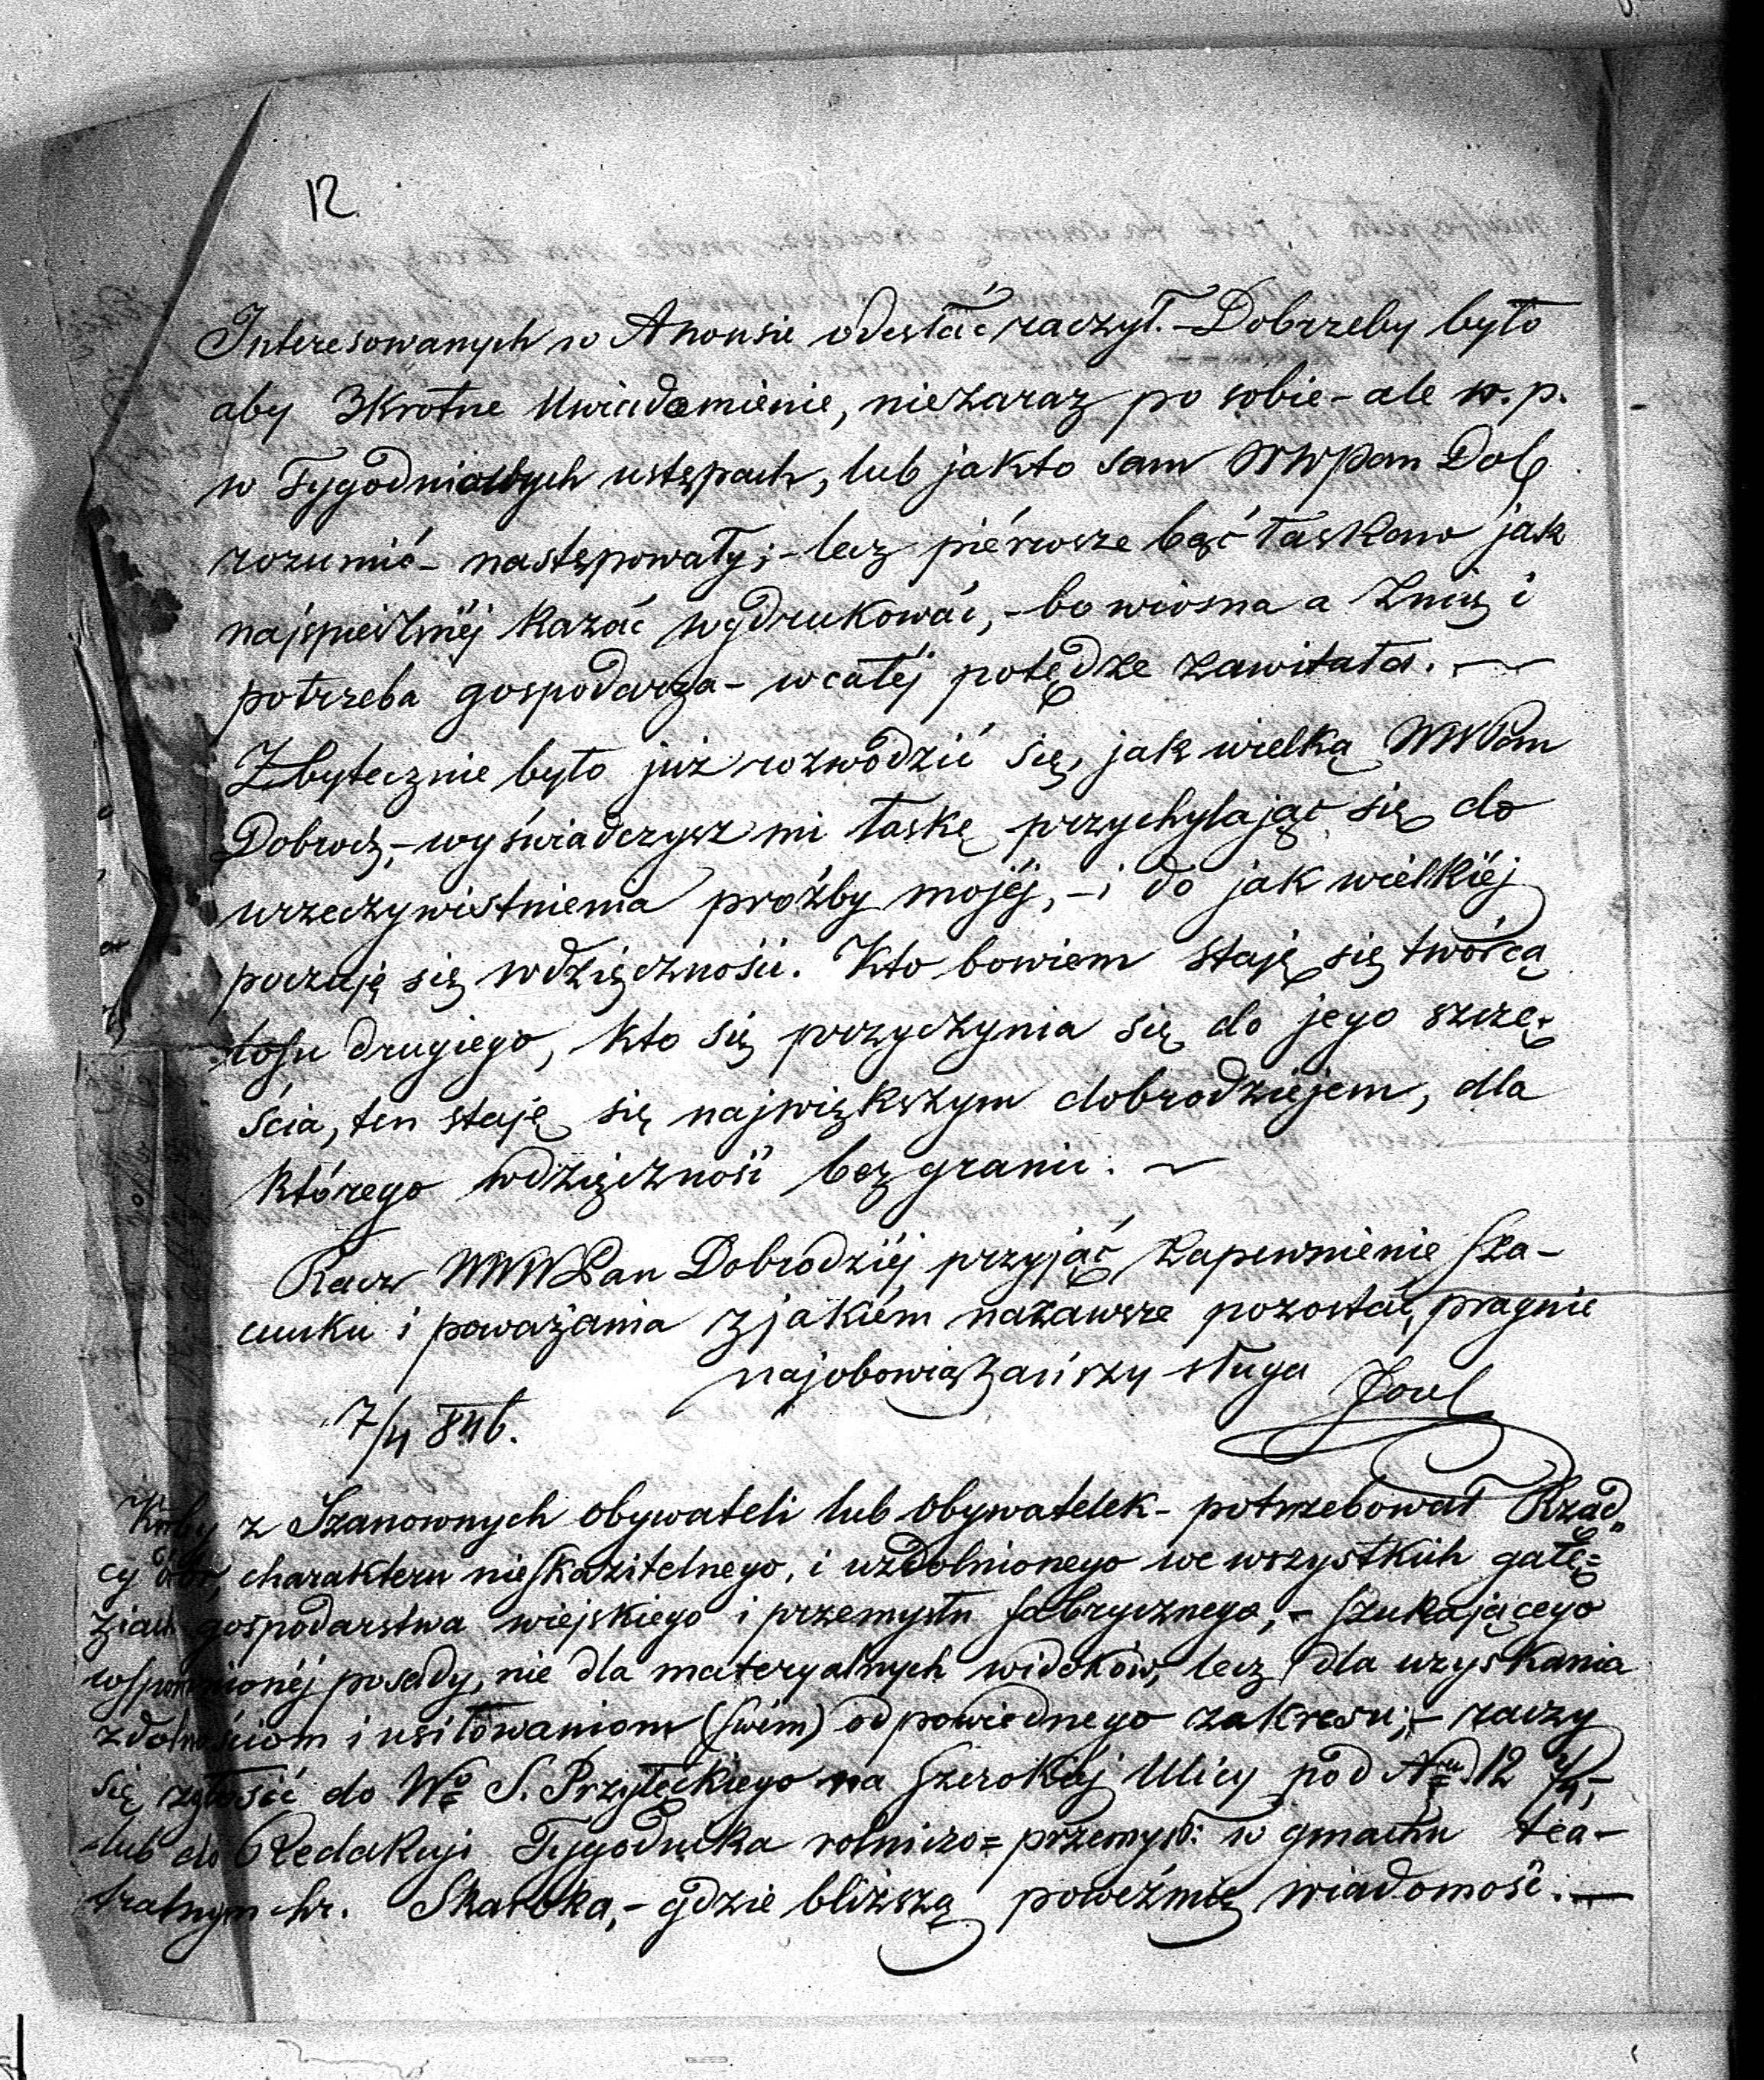 12
Interesowanych w Anonsie odesłać raczył. – Dobrzeby było
aby 3krotne Uwiadomienie, niezaraz po sobie – ale n. p.
w Tygodniowych ustępach, lub jakto sam WWPan Dob
rozumié – następowały; – lecz piérwsze bąć łaskaw jak
najspieszniéj kazać wydrukować, – bo wiosna a z nią i
potrzeba gospodarza – w całéj potędze zawitała. —
Zbytecznie było już rozwodzić się, jak wielką WWPan
Dobrodz, – wyświadczysz mi łaskę przychylając się do
urzeczywistnienia proźby mojéj, – i do jak wielkiéj
poczuję się wdzięczności. Kto bowiem staję się twórcą
losu drugiego, kto się przyczynia się do jego szczę-
ścia, ten staję się największym dobrodziejem, dla
którego wdzięczność bez granic. —
Racz WWWPan Dobrodziéj przyjąć zapewnienie sza-
cunku i poważania z jakiém nazawsze pozostać, pragnie
najobowiązańszy sługa
7/4 846.
Ktoby z Szanownych Obywateli lub Obywatelek – potrzebował Rząd„
cy dóbr, charakteru nieskazitelnego, i uzdolnionego we wszystkich gałę=
ziach gospodarstwa wiejskiego i przemysłu fabrycznego, – szukającego
wspomnionéj posady, nie dla materyalnych widoków, lecz dla uzyskania
zdolnościom i usiłowaniom (swém) odpowiednego zakresu; – raczy
się zgłosić do Wo S. Przyłęckiego na Szerokiéj Ulicy pod Nrm 12
lub do Redakcyi Tygodnika rolniczo=przemysł: w gmachu tea-
tralnym hr. Skarbka, – gdzie bliższą poweźmie wiadomość. —